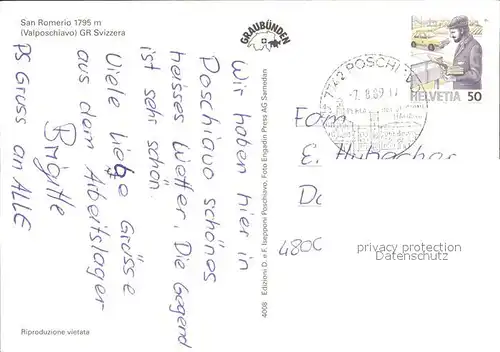 San Romerio 1795 m
(Valposchiavo) GR Svizzera
Wir haben hier in
Poschiavo schönes
heisses Wetter. Die Gegend
ist sehr schön.
Viele liebe Grüsse
aus dem Arbeitslager
Brigitte
PS Gruss an ALLE
Riproduzione vietata
GRAUBÜNDEN
4008 Edizioni D. e F. Isepponi Poschiavo, Foto Engadin Press AG Samedan
7742 POSCHI
-7. 8. 89 17
HELVETIA 50
Fam
E. Hubacher
480
privacy protection
Datenschutz